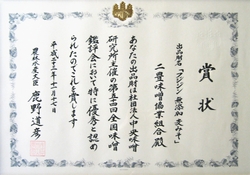 賞状
出品財名「フンドーキン 無添加 麦みそ」
二豊味噌協業組合殿
あなたの出品財は社団法人中央味噌
研究所主催の第五十四回全国味噌
鑑評会において特に優秀と認め
られたのでこれを賞します
平成二十三年十一月十七日
農林水産大臣 鹿野道彦